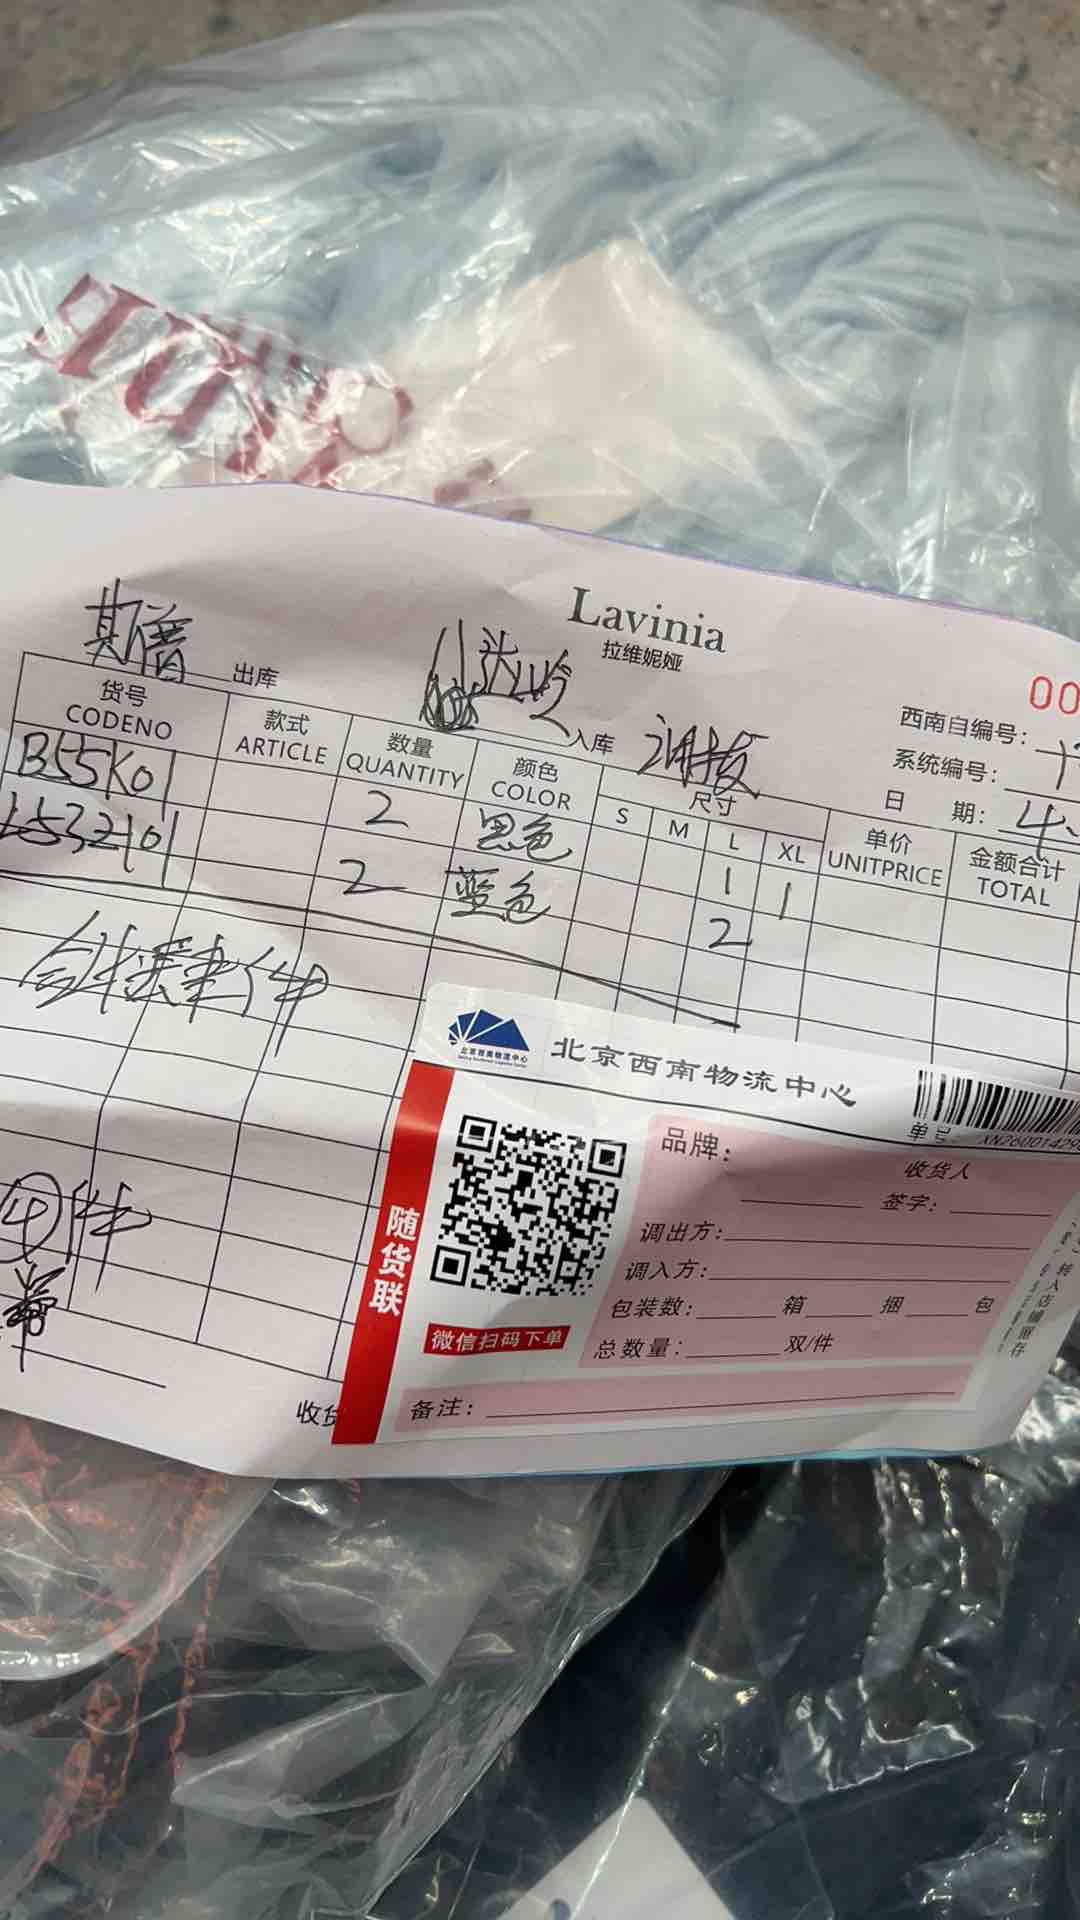 Lavinia
拉维妮娅
斯普 出库
入库 调拨
00
西南自编号:
系统编号:
日 期: 4.
货号 款式 数量 颜色 尺寸 单价 金额合计
CODENO ARTICLE QUANTITY COLOR S M L XL UNITPRICE TOTAL
B55K01 2 黑色 1 1
2 蓝色 2
合计肆件
④件
北京西南物流中心
北京西南物流中心
单号:
随货联
微信扫码下单
品牌:
收货人
签字:
调出方:
调入方:
包装数: 箱 捆 包
总数量: 双/件
备注:
收货